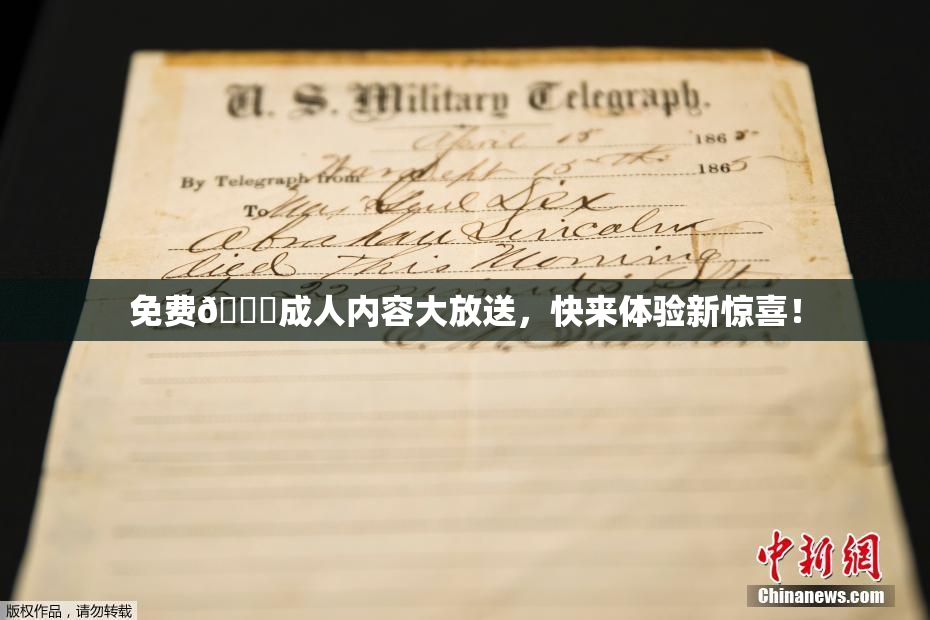 U. S. Military Telegraph.
April 15 1865
By Telegraph from War Dept 15th 1865
To Maj Genl Dix
Abraham Lincoln
died This Morning
at 22 minutes after
免费ð成人内容大放送，快来体验新惊喜！
E. M. Stanton
中新網
Chinanews.com
版权作品，请勿转载